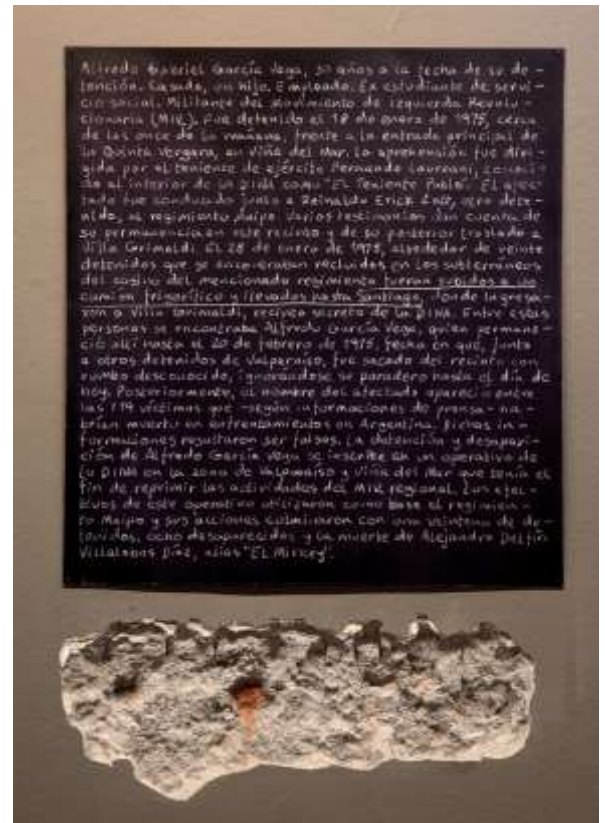 Alfredo Gabriel García Vega, 30 años a la fecha de su de-
tención. Casado, un hijo. Empleado. Ex estudiante de servi-
cio social. Militante del Movimiento de Izquierda Revolu-
cionaria (MIR). Fue detenido el 18 de enero de 1975, cerca
de las once de la mañana, frente a la entrada principal de
la Quinta Vergara, en Viña del Mar. La aprehensión fue diri-
gida por el teniente de ejército Fernando Laureani, conoci-
do al interior de la DINA como "El Teniente Pablo". El afec-
tado fue conducido junto a Reinaldo Erick Zott, otro dete-
nido, al regimiento Maipo. Varios testimonios dan cuenta de
su permanencia en este recinto y de su posterior traslado a
Villa Grimaldi. El 28 de enero de 1975, alrededor de veinte
detenidos que se encontraban recluidos en los subterráneos
del casino del mencionado regimiento fueron subidos a un
camión frigorífico y llevados hasta Santiago, donde ingresa-
ron a Villa Grimaldi, recinto secreto de la DINA. Entre estas
personas se encontraba Alfredo García Vega, quien permane-
ció allí hasta el 20 de febrero de 1975, fecha en que, junto
a otros detenidos de Valparaíso, fue sacado del recinto con
rumbo desconocido, ignorándose su paradero hasta el día de
hoy. Posteriormente, el nombre del afectado apareció entre
las 119 víctimas que -según informaciones de prensa- ha-
brían muerto en enfrentamientos en Argentina. Dichas in-
formaciones resultaron ser falsas. La detención y desapari-
ción de Alfredo García Vega se inscribe en un operativo de
la DINA en la zona de Valparaíso y Viña del Mar que tenía el
fin de reprimir las actividades del MIR regional. Los efec-
tivos de este operativo utilizaron como base el regimien-
to Maipo y sus acciones culminaron con una veintena de de-
tenidos, ocho desaparecidos y la muerte de Alejandro Delfín
Villalobos Díaz, alias "El Mickey".